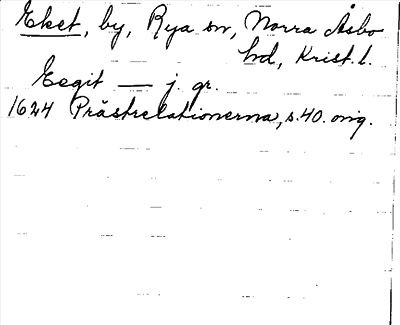 Eket, by, Rya sn, Norra Åsbo
hd, Krist. l.
Eegit — j. gr.
1624 Prästrelationerna, s. 40. orig.